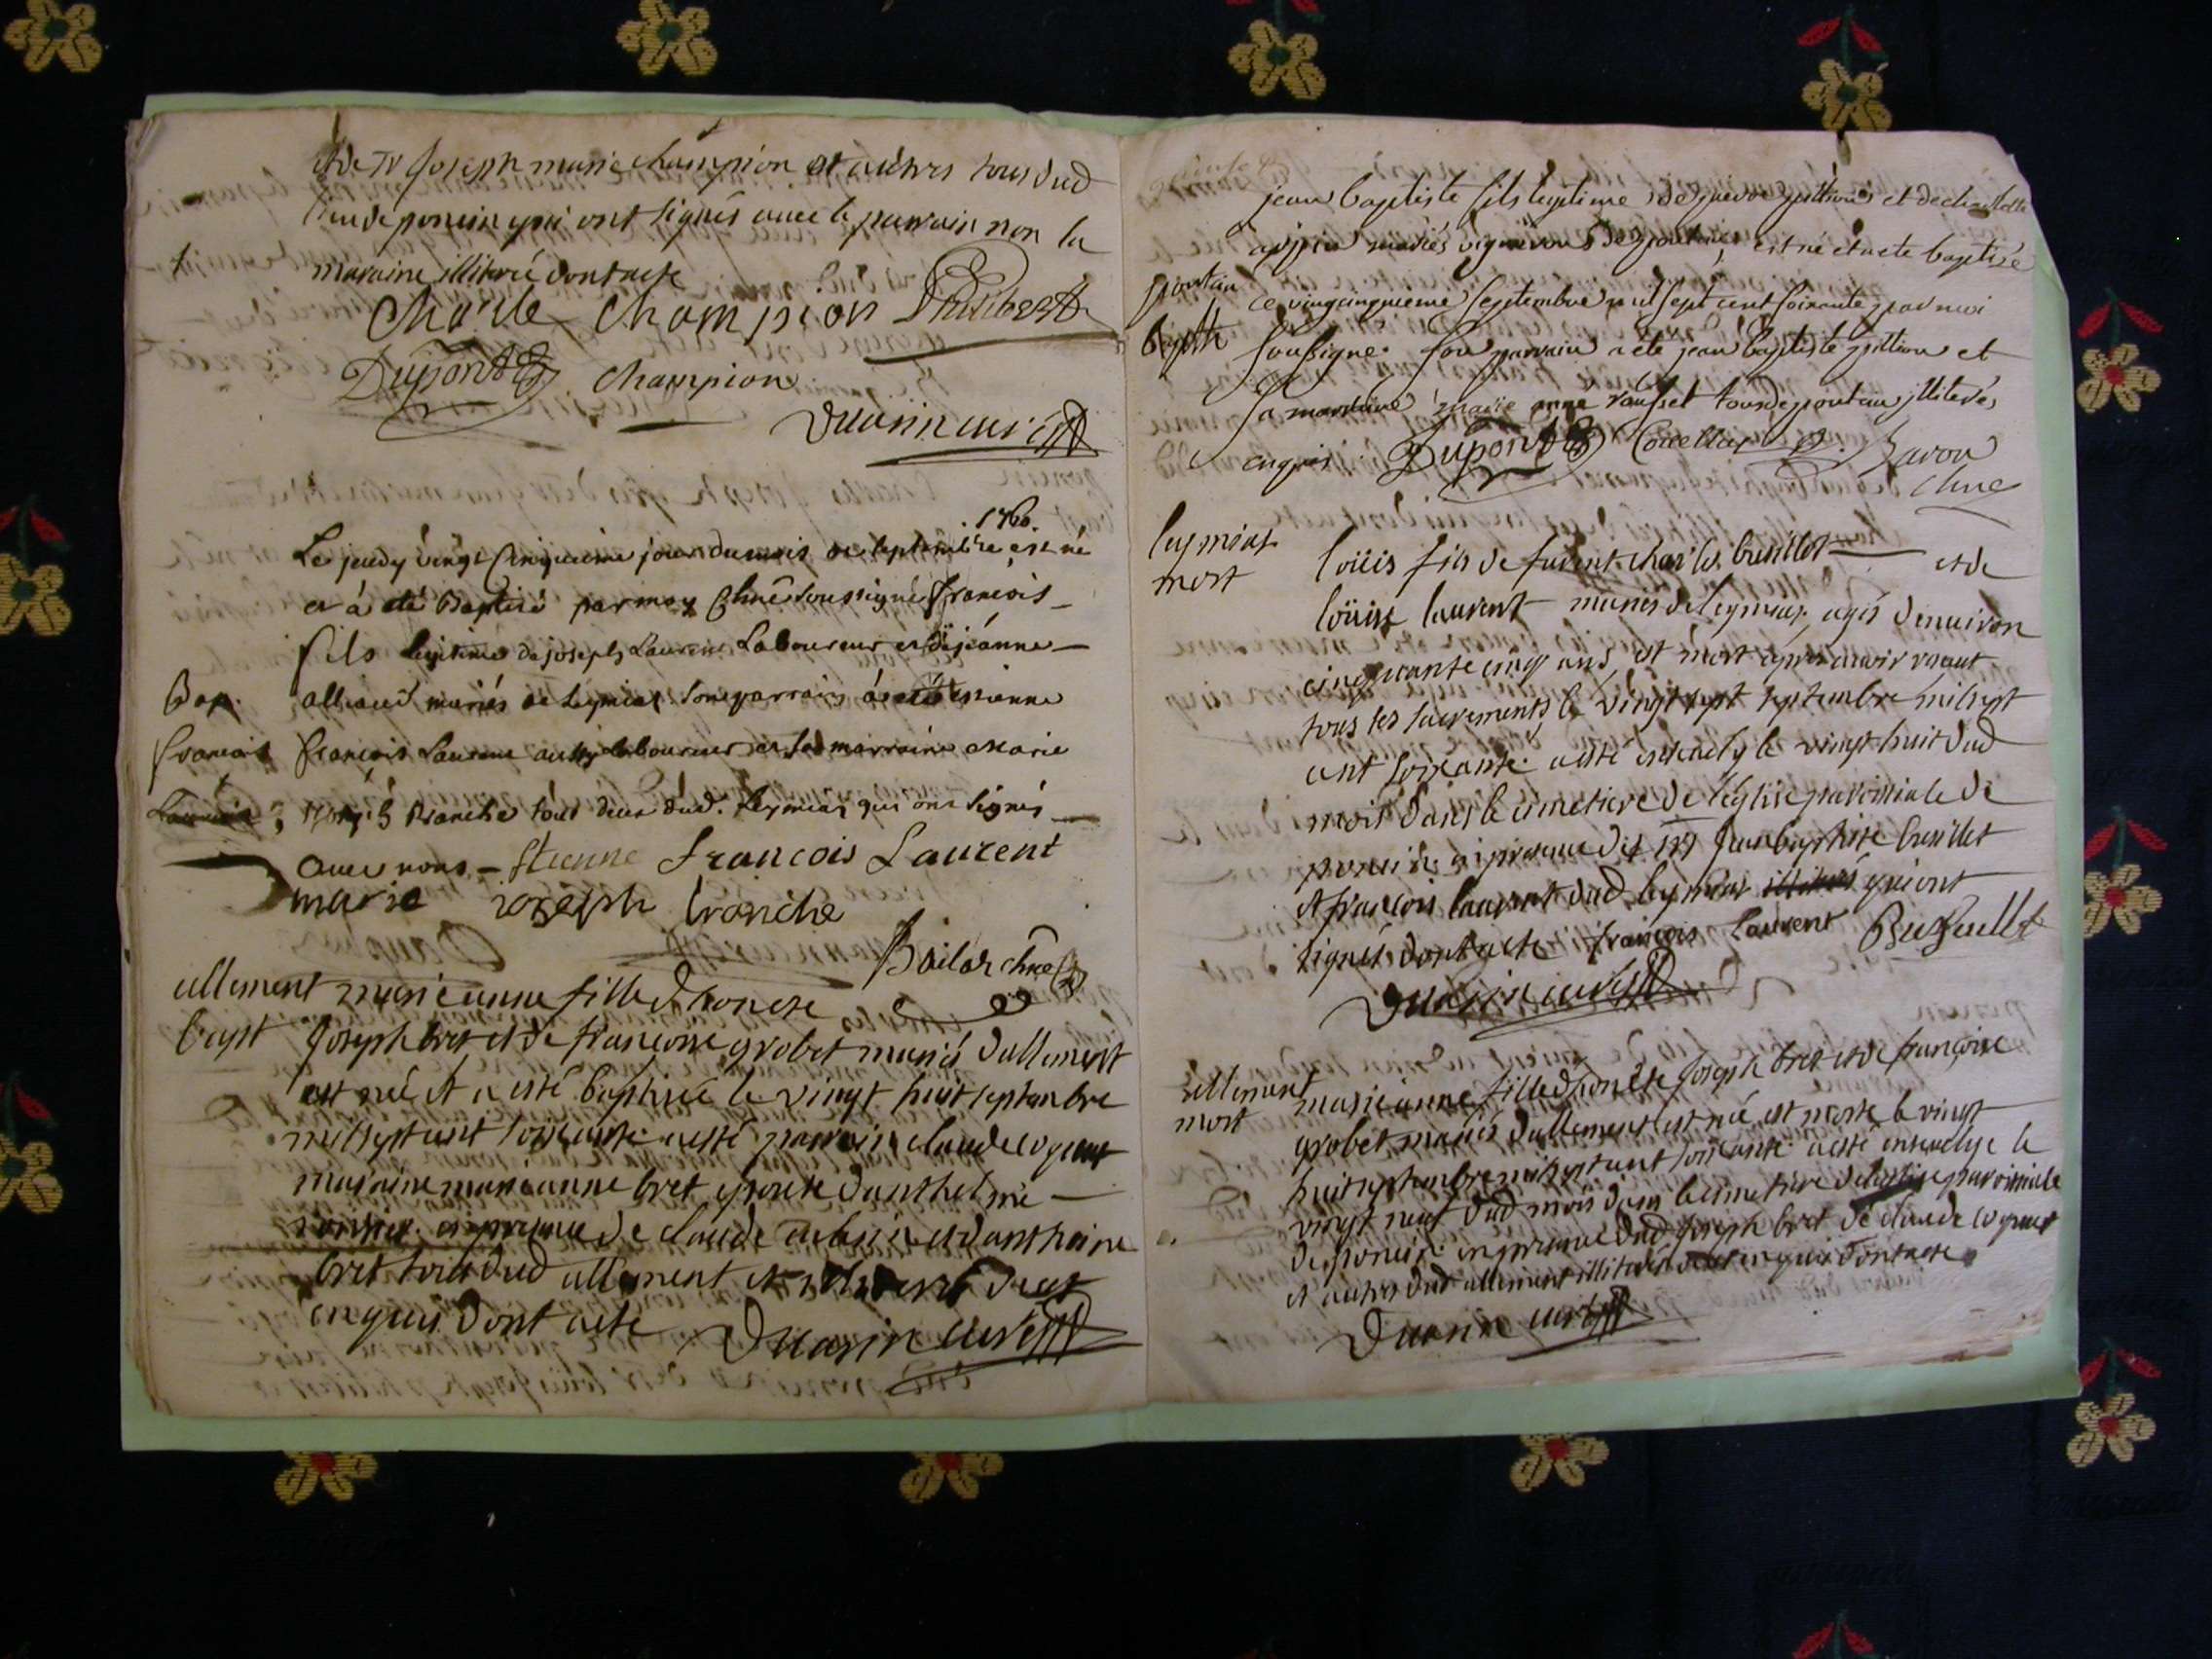 et de Sr Joseph marie champion et autres tous dud
lieu de poncin qui ont signés avec le parrain non la
maraine illiterée dont acte
Charle Champion Philibert
Dupont champion
Duarin curé
1760.
Le jeudy vingt Cinquieme jour du mois de septembre est né
et à eté Baptisé par moy soussigné françois
fils legitime de joseph Laurent Laboureur et de jeanne
alliaud mariés de Leymiat son parrain à eté etienne
françois Laurent aussy laboureur et sa marraine Marie
Joseph Branche tous deux dud. Leymiat qui ont signés
avec nous - Etienne francois Laurent
marie ioseph branche
Bap.
francois
Laurent
Bailat
allement
bapt
marie anne fille d'honete
Joseph bret et de françoise grobet mariés d'allement
est née et a esté baptisée le vingt huit septembre
mil sept cent soissante a esté parrain claude
maraine marie anne bret epouse d'anthelme
en presence de claude et d'anthoine
bret tous dud allement et illiterés de ce
enquis dont acte Duarin curé
jean baptiste fils legitime de pierre pittion et de
mariés vignerons de pontau, est né et a ete baptisé
ce vingcinquieme septembre mil sept cent soixante par moi
soussigné. son parrain a ete jean baptiste pittion et
sa marraine marie anne tous de pontau illiterés
enquis. Dupont
pontau
bapt
leymiat
mort
loüis fils de furent charles busillet et de
loüise laurent mariés de leymiat, agé d'environ
cinquante cinq ans, est mort apres avoir receut
tous les sacrements, le vingt sept septembre mil sept
cent soissante. a esté ensevely le vingt huit dud
mois dans le cimetiere de l'église paroissiale de
poncin en presence des srs Jean baptiste busillet
et françois laurent dud leymiat qui ont
signés dont acte françois laurent
Duarin curé
allement
mort
marie anne fille d'honête Joseph bret et de françoise
grobet mariés d'allement est née est morte le vingt
huit septembre mil sept cent soissante a esté ensevelye le
vingt neuf dud mois dans le cimetiere de l'eglise paroissiale
de poncin en presence dud joseph bret de claude
et autres dud allement illiterés de ce enquis dont acte
Duarin curé